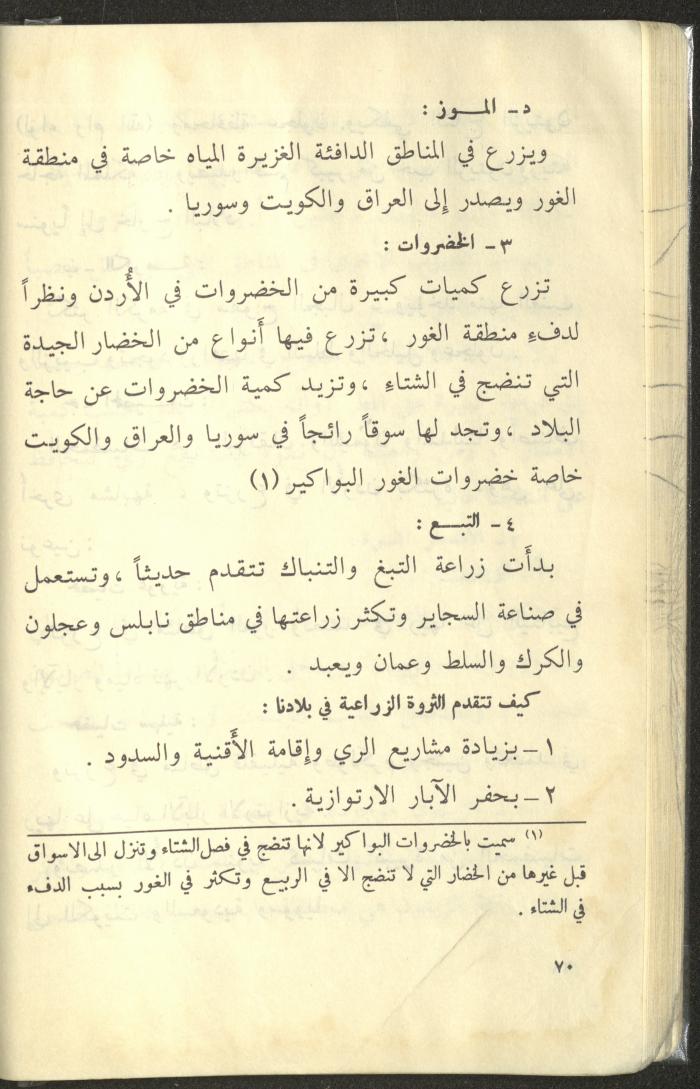 د - المـوز :
ويزرع في المناطق الدافئة الغزيرة المياه خاصة في منطقة
الغور ويصدر إلى العراق والكويت وسوريا .
٣ - الخضروات :
تزرع كميات كبيرة من الخضروات في الأُردن ونظراً
لدفءِ منطقة الغور ، تزرع فيها أَنواع من الخضار الجيدة
التي تنضج في الشتاءِ ، وتزيد كمية الخضروات عن حاجة
البلاد ، وتجد لها سوقاً رائجاً في سوريا والعراق والكويت
خاصة خضروات الغور البواكير (١)
٤ - التبـغ :
بدأَت زراعة التبغ والتنباك تتقدم حديثاً ، وتستعمل
في صناعة السجاير وتكثر زراعتها في مناطق نابلس وعجلون
والكرك والسلط وعمان ويعبد .
كيف تتقدم الثروة الزراعية في بلادنا :
١ - بزيادة مشاريع الري وإقامة الأَقنية والسدود .
٢ - بحفر الآبار الارتوازية .
(١) سميت بالخضروات البواكير لانها تنضج في فصل الشتاء وتنزل الى الاسواق
قبل غيرها من الخضار التي لا تنضج الا في الربيع وتكثر في الغور بسبب الدفء
في الشتاء .
٧٠